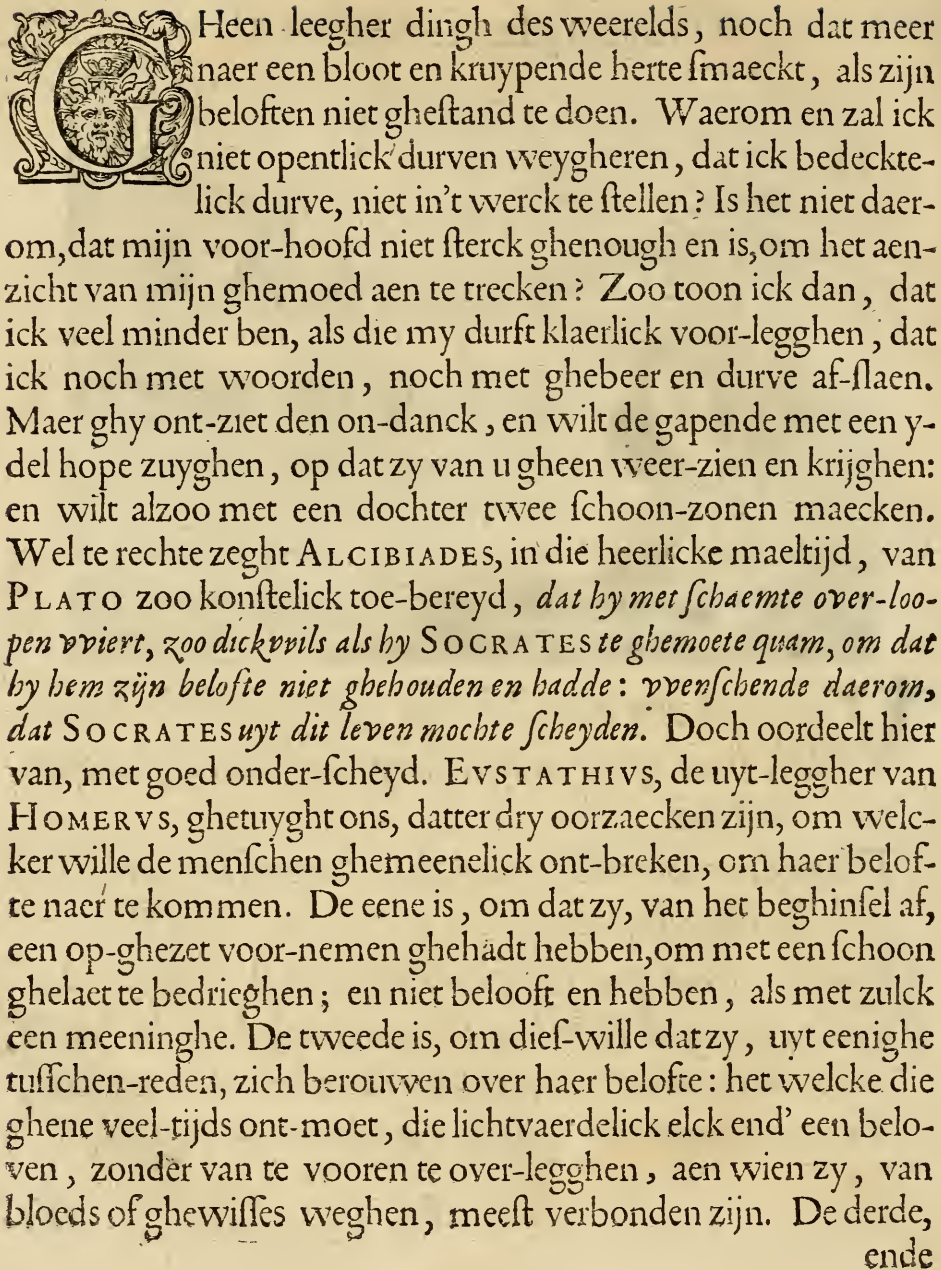 GHeen leegher dingh des weerelds, noch dat meer
naer een bloot en kruypende herte ſmaeckt, als zijn
beloften niet gheſtand te doen. Waerom en zal ick
niet opentlick durven weygheren, dat ick bedeckte-
lick durve, niet in't werck te ſtellen? Is het niet daer-
om, dat mijn voor-hoofd niet ſterck ghenough en is, om het aen-
zicht van mijn ghemoed aen te trecken? Zoo toon ick dan, dat
ick veel minder ben, als die my durft klaerlick voor-legghen, dat
ick noch met woorden, noch met ghebeer en durve af-ſlaen.
Maer ghy ont-ziet den on-danck, en wilt de gapende met een y-
del hope zuyghen, op dat zy van u gheen weer-zien en krijghen:
en wilt alzoo met een dochter twee ſchoon-zonen maecken.
Wel te rechte zeght ALCIBIADES, in die heerlicke maeltijd, van
PLATO zoo konſtelick toe-bereyd, dat hy met ſchaemte over-loo-
pen vviert, zoo dickvvils als hy SOCRATES te ghemoete quam, om dat
hy hem zijn belofte niet ghehouden en hadde: vvenſchende daerom,
dat SOCRATES uyt dit leven mochte ſcheyden. Doch oordeelt hier
van, met goed onder-ſcheyd. EVSTATHIVS, de uyt-leggher van
HOMERVS, ghetuyght ons, datter dry oorzaecken zijn, om welc-
ker wille de menſchen ghemeenelick ont-breken, om haer belof-
te naer te kommen. De eene is, om dat zy, van het beghinſel af,
een op-ghezet voor-nemen ghehadt hebben, om met een ſchoon
ghelaet te bedrieghen; en niet belooft en hebben, als met zulck
een meeninghe. De tweede is, om dieſ-wille dat zy, uyt eenighe
tuſſchen-reden, zich berouwen over haer belofte: het welcke die
ghene veel-tijds ont-moet, die lichtvaerdelick elck end' een belo-
ven, zonder van te vooren te over-legghen, aen wien zy, van
bloeds of ghewiſſes weghen, meeſt verbonden zijn. De derde,
ende